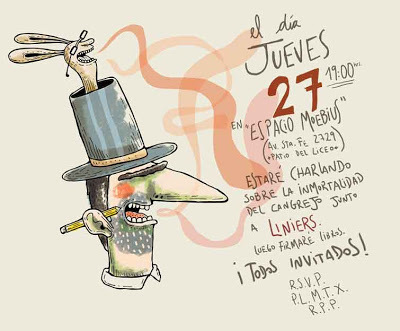 el día
JUEVES
27 19:00 hs.
EN "ESPACIO MOEBIUS"
(AV. STA. FE 2729
"PATIO DEL LICEO")
ESTARE CHARLANDO
SOBRE LA INMORTALIDAD
DEL CANGREJO JUNTO
A LINIERS.
LUEGO FIRMARÉ LIBROS.
¡TODOS INVITADOS!
R.S.V.P.
P.L.M.T.X.
R.P.P.